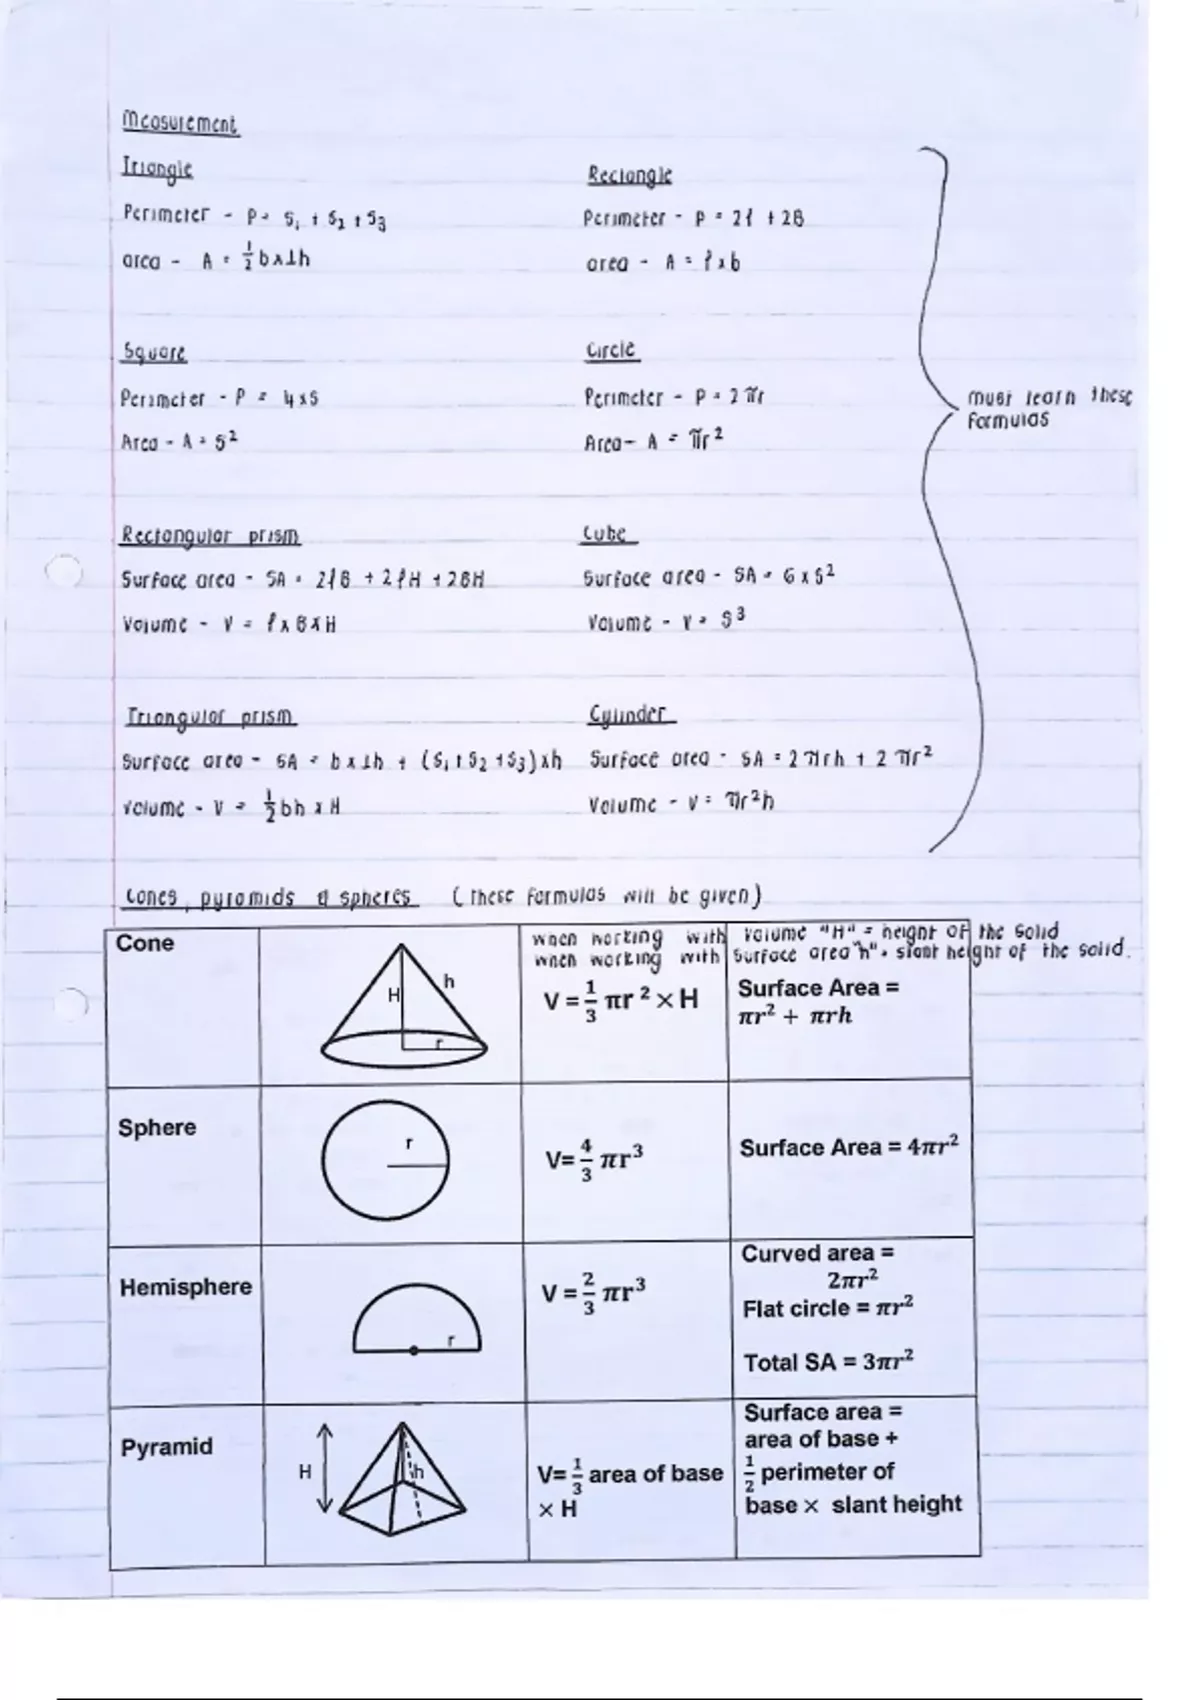 Measurement
Triangle
Perimeter - P = S₁ + S₂ + S₃
area - A = 1/2 b x ⊥h
Rectangle
Perimeter - P = 2l + 2B
area - A = l x b
Square
Perimeter - P = 4 x S
Area - A = S²
Circle
Perimeter - P = 2πr
Area - A = πr²
must learn these
formulas
Rectangular prism
Surface area - SA = 2lB + 2lH + 2BH
Volume - V = l x B x H
Cube
Surface area - SA = 6 x S²
Volume - V = S³
Triangular prism
Surface area - SA = b x ⊥h + (S₁ + S₂ + S₃) x h
Volume - V = 1/2 bh x H
Cylinder
Surface area - SA = 2πrh + 2πr²
Volume - V = πr²h
Cones, pyramids & spheres (these formulas will be given)
when working with volume "H" = height of the solid
when working with surface area "h" = slant height of the solid.
Cone
H
h
r
V = 1/3 πr² × H
Surface Area =
πr² + πrh
Sphere
r
V= 4/3 πr³
Surface Area = 4πr²
Hemisphere
r
V = 2/3 πr³
Curved area =
2πr²
Flat circle = πr²
Total SA = 3πr²
Pyramid
H
h
V= 1/3 area of base
× H
Surface area =
area of base +
1/2 perimeter of
base × slant height